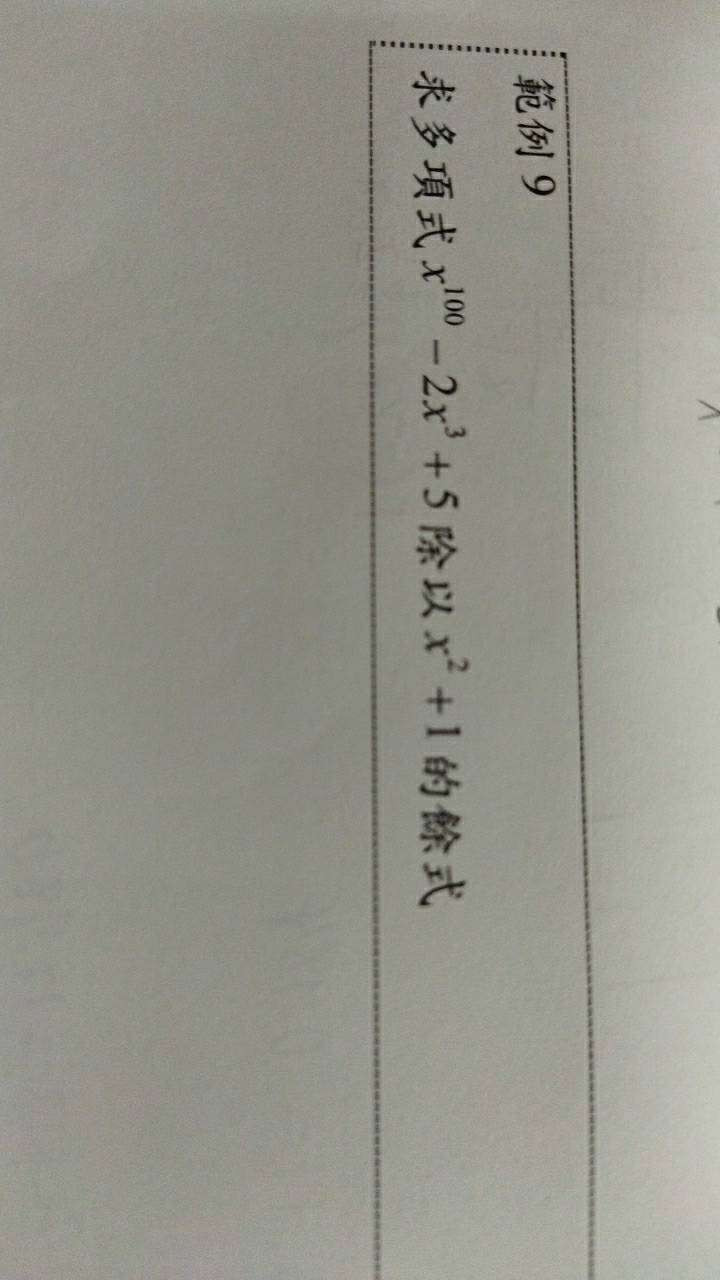 範例 9
求多項式 x¹⁰⁰ − 2x³ + 5 除以 x² + 1 的餘式